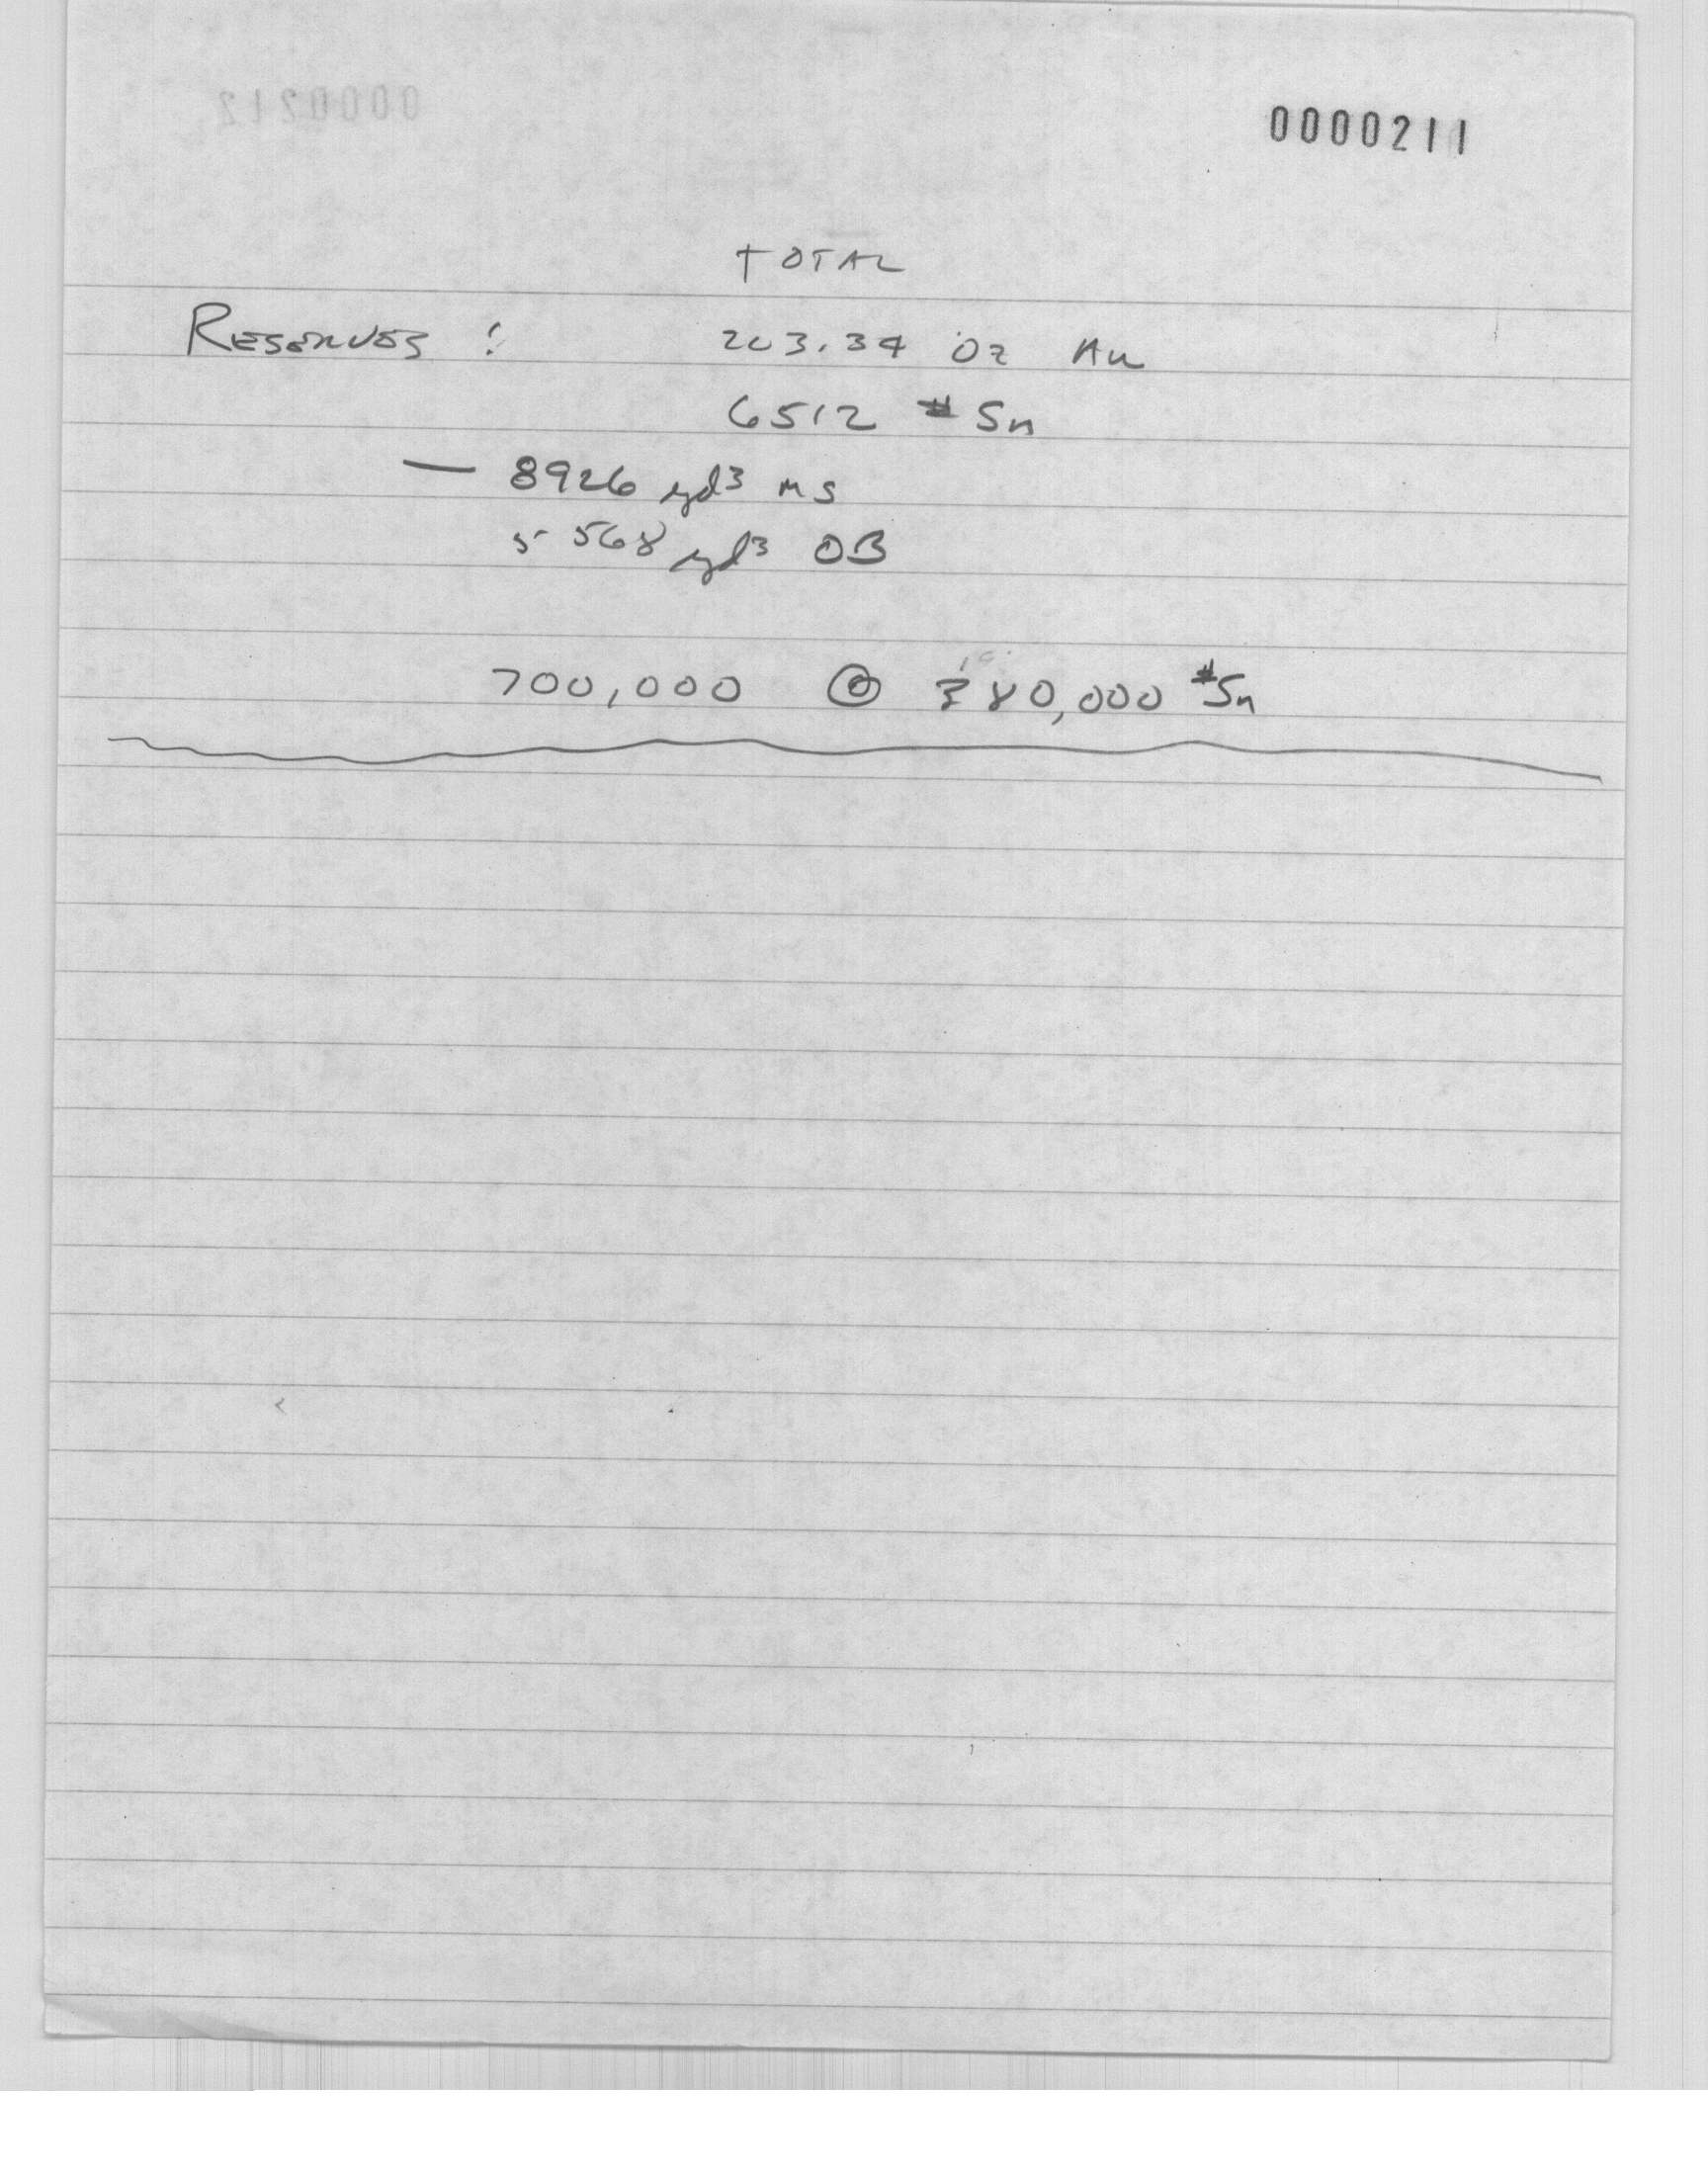 0000211
TOTAL
RESERVES : 203.34 Oz Au
6512 # Sn
— 8926 yd³ MS
5568 yd³ OB
700,000 @ 380,000 # Sn